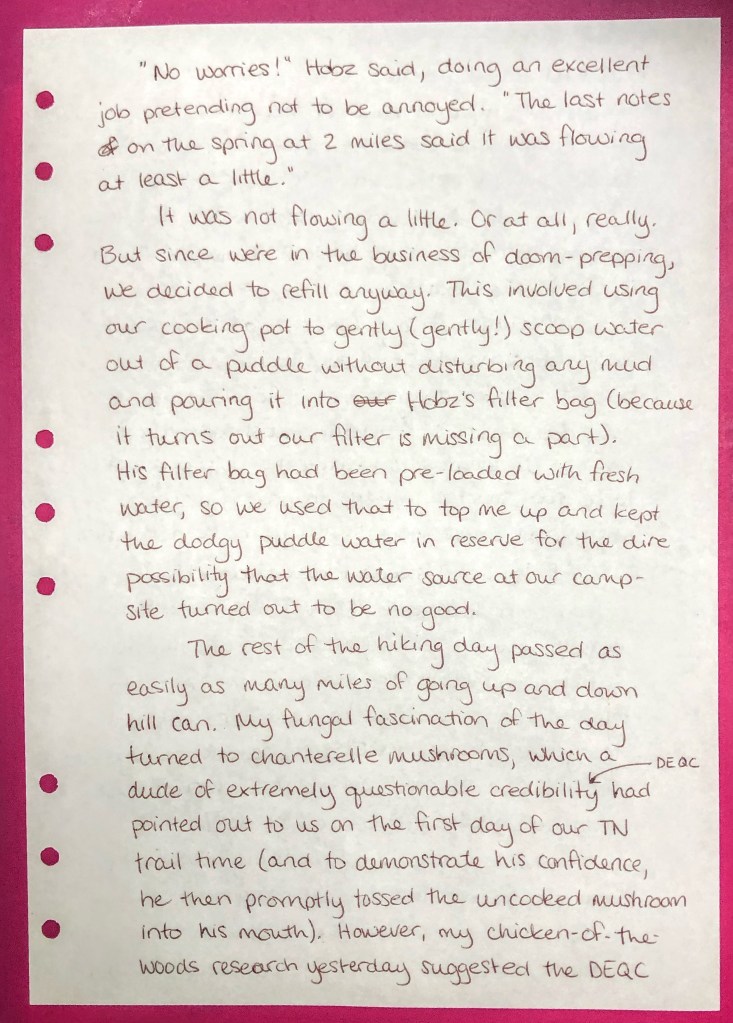 "No worries!" Hobz said, doing an excellent
job pretending not to be annoyed. "The last notes
on the spring at 2 miles said it was flowing
at least a little."
It was not flowing a little. Or at all, really.
But since we're in the business of doom-prepping,
we decided to refill anyway. This involved using
our cooking pot to gently (gently!) scoop water
out of a puddle without disturbing any mud
and pouring it into our Hobz's filter bag (because
it turns out our filter is missing a part).
His filter bag had been pre-loaded with fresh
water, so we used that to top me up and kept
the dodgy puddle water in reserve for the dire
possibility that the water source at our camp-
site turned out to be no good.
The rest of the hiking day passed as
easily as many miles of going up and down
hill can. My fungal fascination of the day
turned to chanterelle mushrooms, which a
DEQC
dude of extremely questionable credibility had
pointed out to us on the first day of our TN
trail time (and to demonstrate his confidence,
he then promptly tossed the uncooked mushroom
into his mouth). However, my chicken-of-the-
woods research yesterday suggested the DEQC